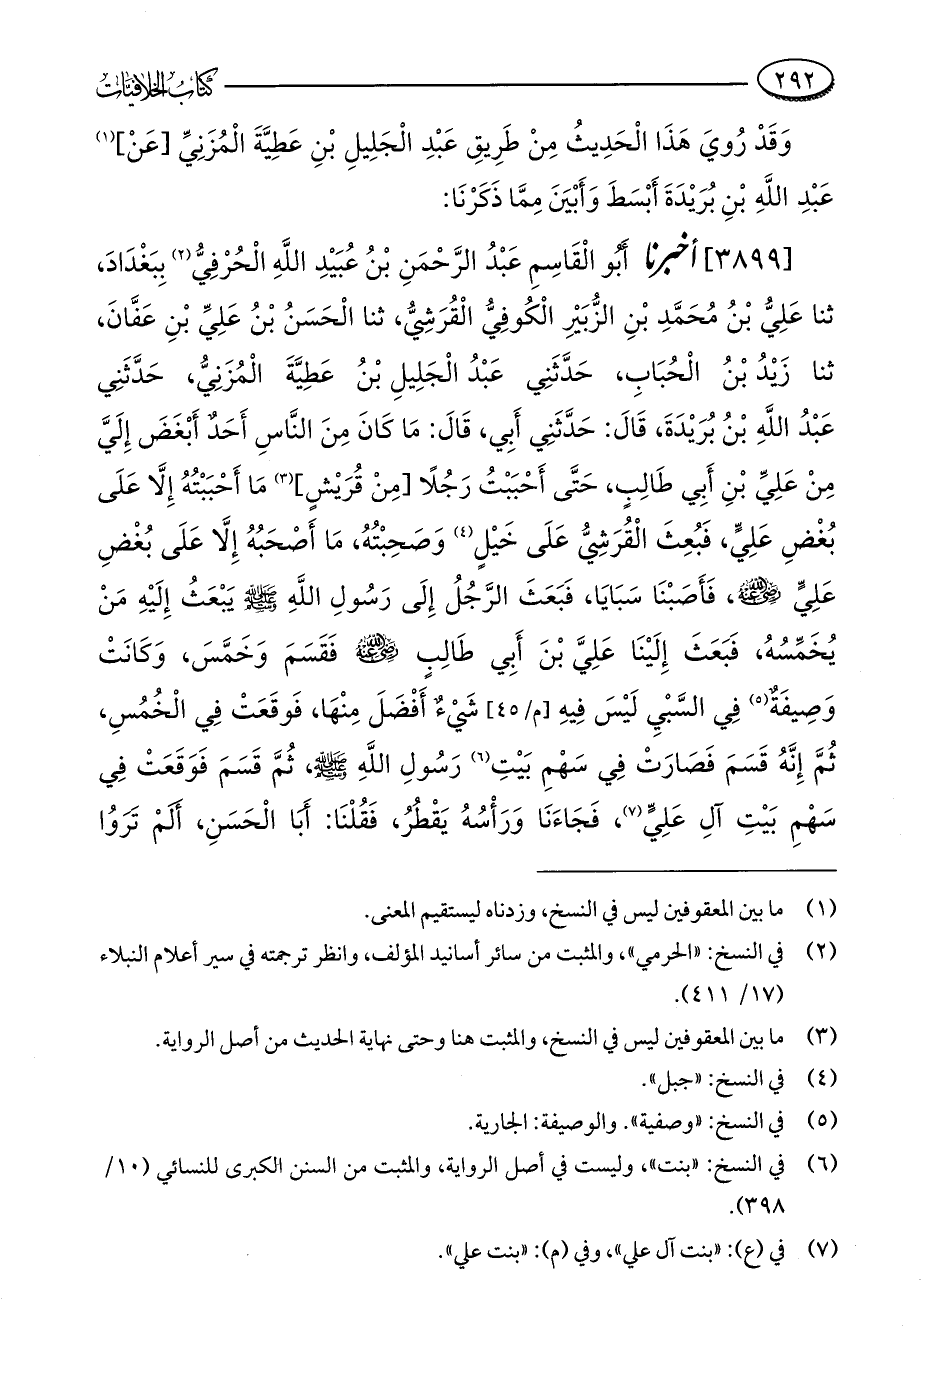 ٢٩٢ كتاب الخلافيات
وَقَدْ رُوِيَ هَذَا الْحَدِيثُ مِنْ طَرِيقِ عَبْدِ الْجَلِيلِ بْنِ عَطِيَّةَ الْمُزَنِيِّ [عَنْ](١)
عَبْدِ اللَّهِ بْنِ بُرَيْدَةَ أَبْسَطَ وَأَبْيَنَ مِمَّا ذَكَرْنَا:
[٣٨٩٩] أخبرنا أَبُو الْقَاسِمِ عَبْدُ الرَّحْمَنِ بْنُ عُبَيْدِ اللَّهِ الْحُرْفِيُّ(٢) بِبَغْدَادَ،
ثنا عَلِيُّ بْنُ مُحَمَّدِ بْنِ الزُّبَيْرِ الْكُوفِيُّ الْقُرَشِيُّ، ثنا الْحَسَنُ بْنُ عَلِيِّ بْنِ عَفَّانَ،
ثنا زَيْدُ بْنُ الْحُبَابِ، حَدَّثَنِي عَبْدُ الْجَلِيلِ بْنُ عَطِيَّةَ الْمُزَنِيُّ، حَدَّثَنِي
عَبْدُ اللَّهِ بْنُ بُرَيْدَةَ، قَالَ: حَدَّثَنِي أَبِي، قَالَ: مَا كَانَ مِنَ النَّاسِ أَحَدٌ أَبْغَضَ إِلَيَّ
مِنْ عَلِيِّ بْنِ أَبِي طَالِبٍ، حَتَّى أَحْبَبْتُ رَجُلًا [مِنْ قُرَيْشٍ](٣) مَا أَحْبَبْتُهُ إِلَّا عَلَى
بُغْضِ عَلِيٍّ، فَبُعِثَ الْقُرَشِيُّ عَلَى خَيْلٍ(٤) وَصَحِبْتُهُ، مَا أَصْحَبُهُ إِلَّا عَلَى بُغْضِ
عَلِيٍّ رضي الله عنه، فَأَصَبْنَا سَبَايَا، فَبَعَثَ الرَّجُلُ إِلَى رَسُولِ اللَّهِ ﷺ يَبْعَثُ إِلَيْهِ مَنْ
يُخَمِّسُهُ، فَبَعَثَ إِلَيْنَا عَلِيَّ بْنَ أَبِي طَالِبٍ رضي الله عنه فَقَسَمَ وَخَمَّسَ، وَكَانَتْ
وَصِيفَةٌ(٥) فِي السَّبْيِ لَيْسَ فِيهِ [م/ ٤٥] شَيْءٌ أَفْضَلَ مِنْهَا، فَوَقَعَتْ فِي الْخُمُسِ،
ثُمَّ إِنَّهُ قَسَمَ فَصَارَتْ فِي سَهْمِ بَيْتِ(٦) رَسُولِ اللَّهِ ﷺ، ثُمَّ قَسَمَ فَوَقَعَتْ فِي
سَهْمِ بَيْتِ آلِ عَلِيٍّ(٧)، فَجَاءَنَا وَرَأْسُهُ يَقْطُرُ، فَقُلْنَا: أَبَا الْحَسَنِ، أَلَمْ تَرَوُا
(١) ما بين المعقوفين ليس في النسخ، وزدناه ليستقيم المعنى.
(٢) في النسخ: «الحرمي»، والمثبت من سائر أسانيد المؤلف، وانظر ترجمته في سير أعلام النبلاء
(١٧/ ٤١١).
(٣) ما بين المعقوفين ليس في النسخ، والمثبت هنا وحتى نهاية الحديث من أصل الرواية.
(٤) في النسخ: «جبل».
(٥) في النسخ: «وصفية». والوصيفة: الجارية.
(٦) في النسخ: «بنت»، وليست في أصل الرواية، والمثبت من السنن الكبرى للنسائي (١٠/
٣٩٨).
(٧) في (ع): «بنت آل علي»، وفي (م): «بنت علي».